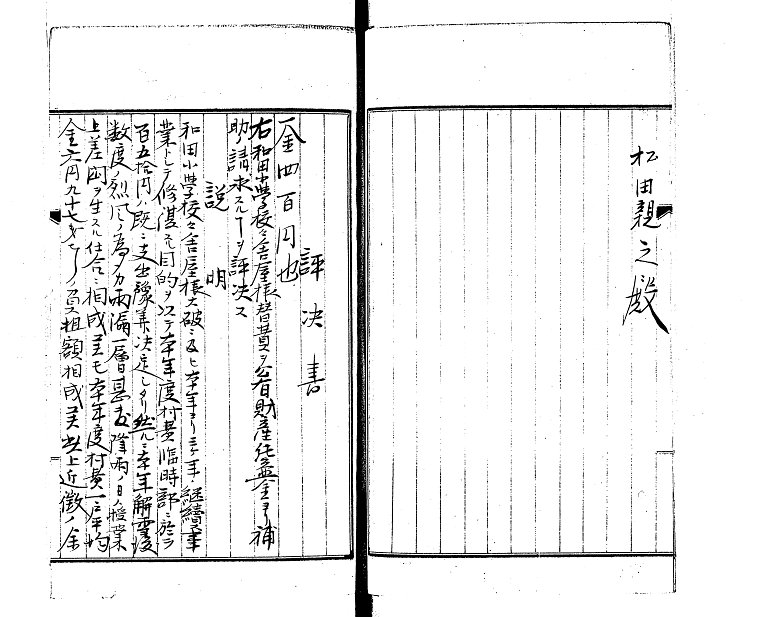 松田親之殿
評決書
一金四百円也
右和田小学校々舎屋根替費ヲ共有財産純益金ヨリ補
助請求スルヿヲ評決ス
説明
和田小学校々舎屋根大破ニ及ヒ本年ヨリ三ヶ年継続事
業トシテ修造スル目的ヲ以テ本年度村費臨時部ニ於テ
百五拾円ノ既ニ支出予算決定シタリ然ルニ本年解雪後
数度ノ烈風ノ為メカ雨漏一層甚敷降雨ノ日ノ授業
上差閊ヲ生スル仕合ニ相成候モ本年度村費一戸平均
金六円九十七銭 ノ負担額相成候 上追徴ノ余